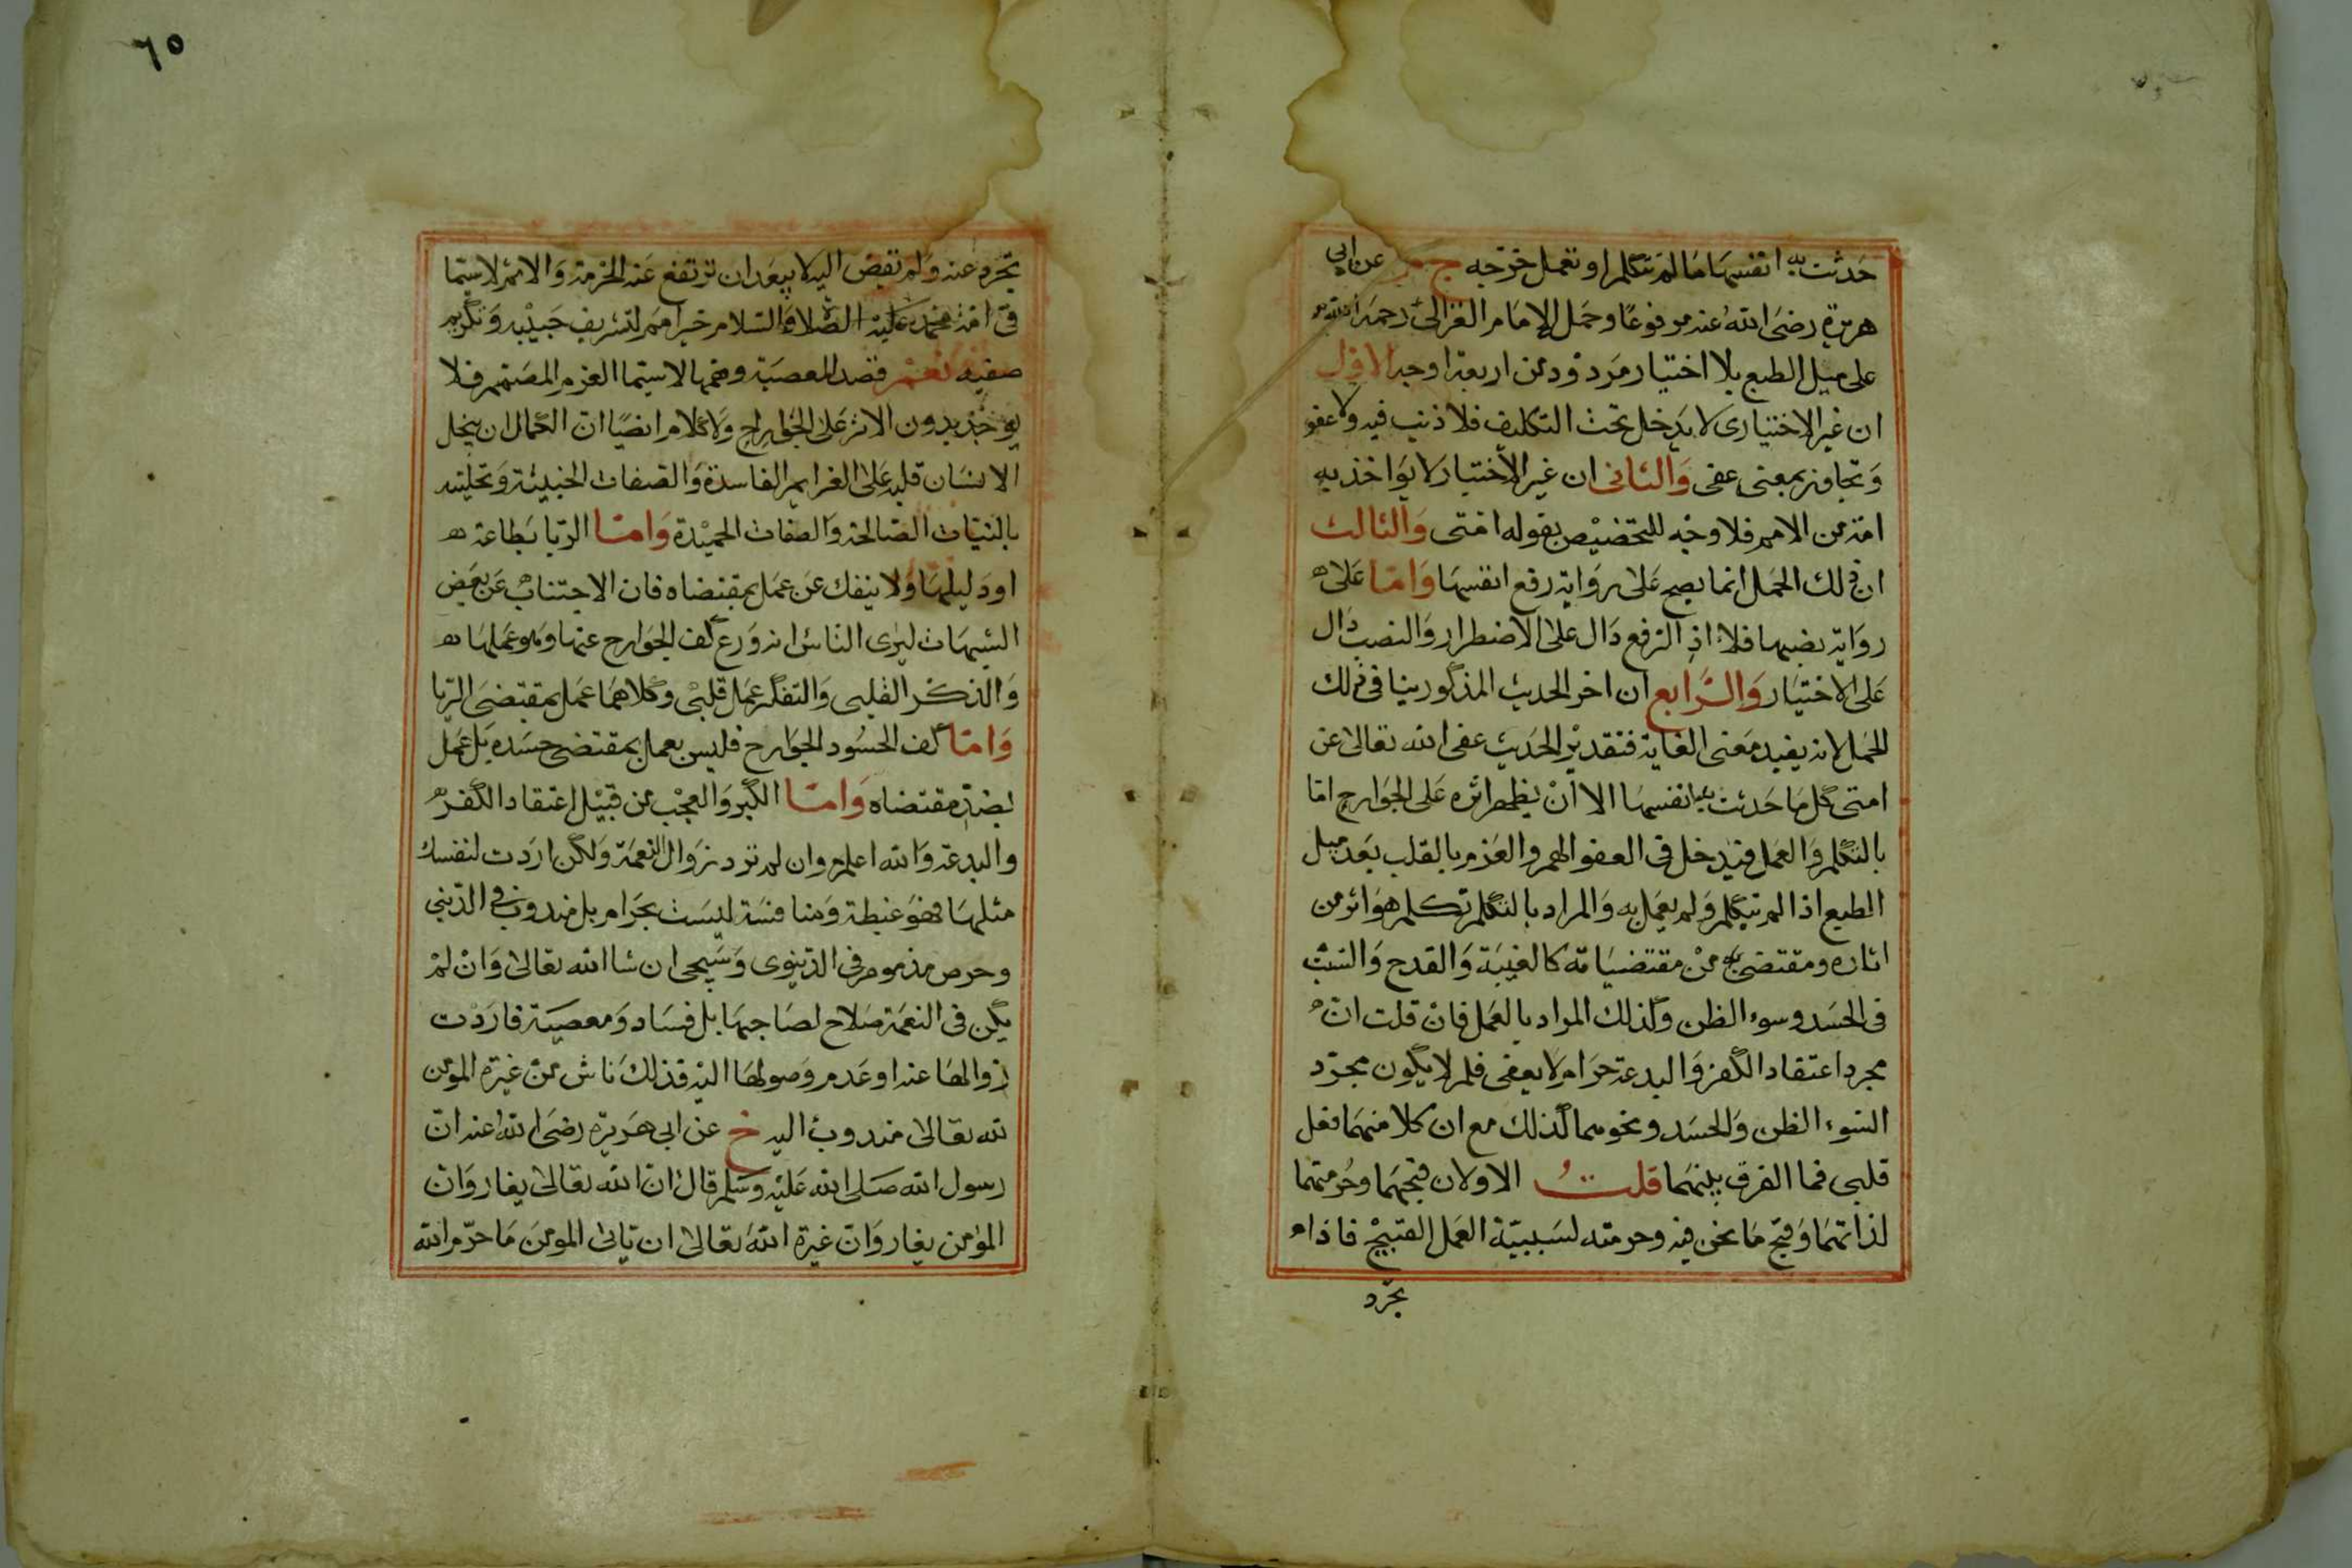 حدثت به انفسها ما لم تتكلم او تعمل خرجه خ م عن ابى
هريرة رضى الله عنه مرفوعا وحمل الامام الغزالى رحمه الله
على ميل الطبع بلا اختيار مردود من اربعة اوجه الاول
ان غير الاختيارى لا يدخل تحت التكليف فلا ذنب فيه ولا عفو
وتجاوز بمعنى عفى والثانى ان غير الاختيار لا يواخذ به
امة من الامم فلا وجه للتخصيص بقوله امتى والثالث
ان ذلك الحمل انما يصح على رواية رفع انفسها واما على
رواية نصبها فلا اذ الرفع دال على الاضطرار والنصب دال
على الاختيار والرابع ان اخر الحديث المذكور ينافى ذلك
الحمل لانه يفيد معنى الغاية فتقدير الحديث عفى الله تعالى عن
امتى كل ما حدثت به انفسها الا ان يظهر اثره على الجوارح اما
بالتكلم والعمل فيدخل فى العفو الهم والعزم بالقلب بعد ميل
الطبع اذا لم يتكلم ولم يعمل به والمراد بالتكلم تكلم هو اثر من
اثاره ومقتضى من مقتضياته كالغيبة والقدح والشتم
فى الحسد وسوء الظن وكذلك المراد بالعمل فان قلت ان
مجرد اعتقاد الكفر والبدعة حرام لا يعفى فلم لا يكون مجرد
السوء الظن والحسد ونحوهما كذلك مع ان كلا منهما فعل
قلبى فما الفرق بينهما قلت الاولان قبحهما وحرمتهما
لذاتهما وقبح ما نحن فيه وحرمته لسببية العمل القبيح فاذا
تجرد
٦٥
تجرد عنه ولم تفض اليه لا يبعد ان ترتفع عنه الحرمة والاثم لا سيما
فى امة محمد عليه الصلاة والسلام خير امم لتشريف حبيبه وتكريم
صفيه نعم قصد المعصية وهمها لا سيما العزم المصمم فلا
يوخذ بدون الاثر على الجوارح ولا كلام ايضا ان الكمال ان يخل
الانسان قلبه على الغرايم الفاسدة والصفات الخبيثة وتحليته
بالنيات الصالحة والصفات الحميدة واما الريا بطاعة
او دليلها ولا ينفك عن عمل بمقتضاه فان الاجتناب عن بعض
الشبهات ليرى الناس انه ورع كف الجوارح عنها وهو عملها
والذكر القلبى والتفكر عمل قلبى وكلاهما عمل بمقتضى الريا
واما كف الحسود الجوارح فليس بعمل بمقتضى حسده بل عمل
بضد مقتضاه واما الكبر والعجب من قبيل اعتقاد الكفر
والبدعة والله اعلم وان لم ترد زوال النعمة ولكن اردت لنفسك
مثلها فهو غبطة ومنافسة ليست بحرام بل مندوب فى الدينى
وحرص مذموم فى الدنيوى وسيجى ان شا الله تعالى وان لم
يكن فى النعمة صلاح لصاحبها بل فساد ومعصية فاردت
زوالها عنه او عدم وصولها اليه فذلك ناش من غيرة المومن
لله تعالى مندوب اليه خ عن ابى هريرة رضى الله عنه ان
رسول الله صلى الله عليه وسلم قال ان الله تعالى يغار وان
المؤمن يغار وان غيرة الله تعالى ان ياتى المومن ما حرم الله